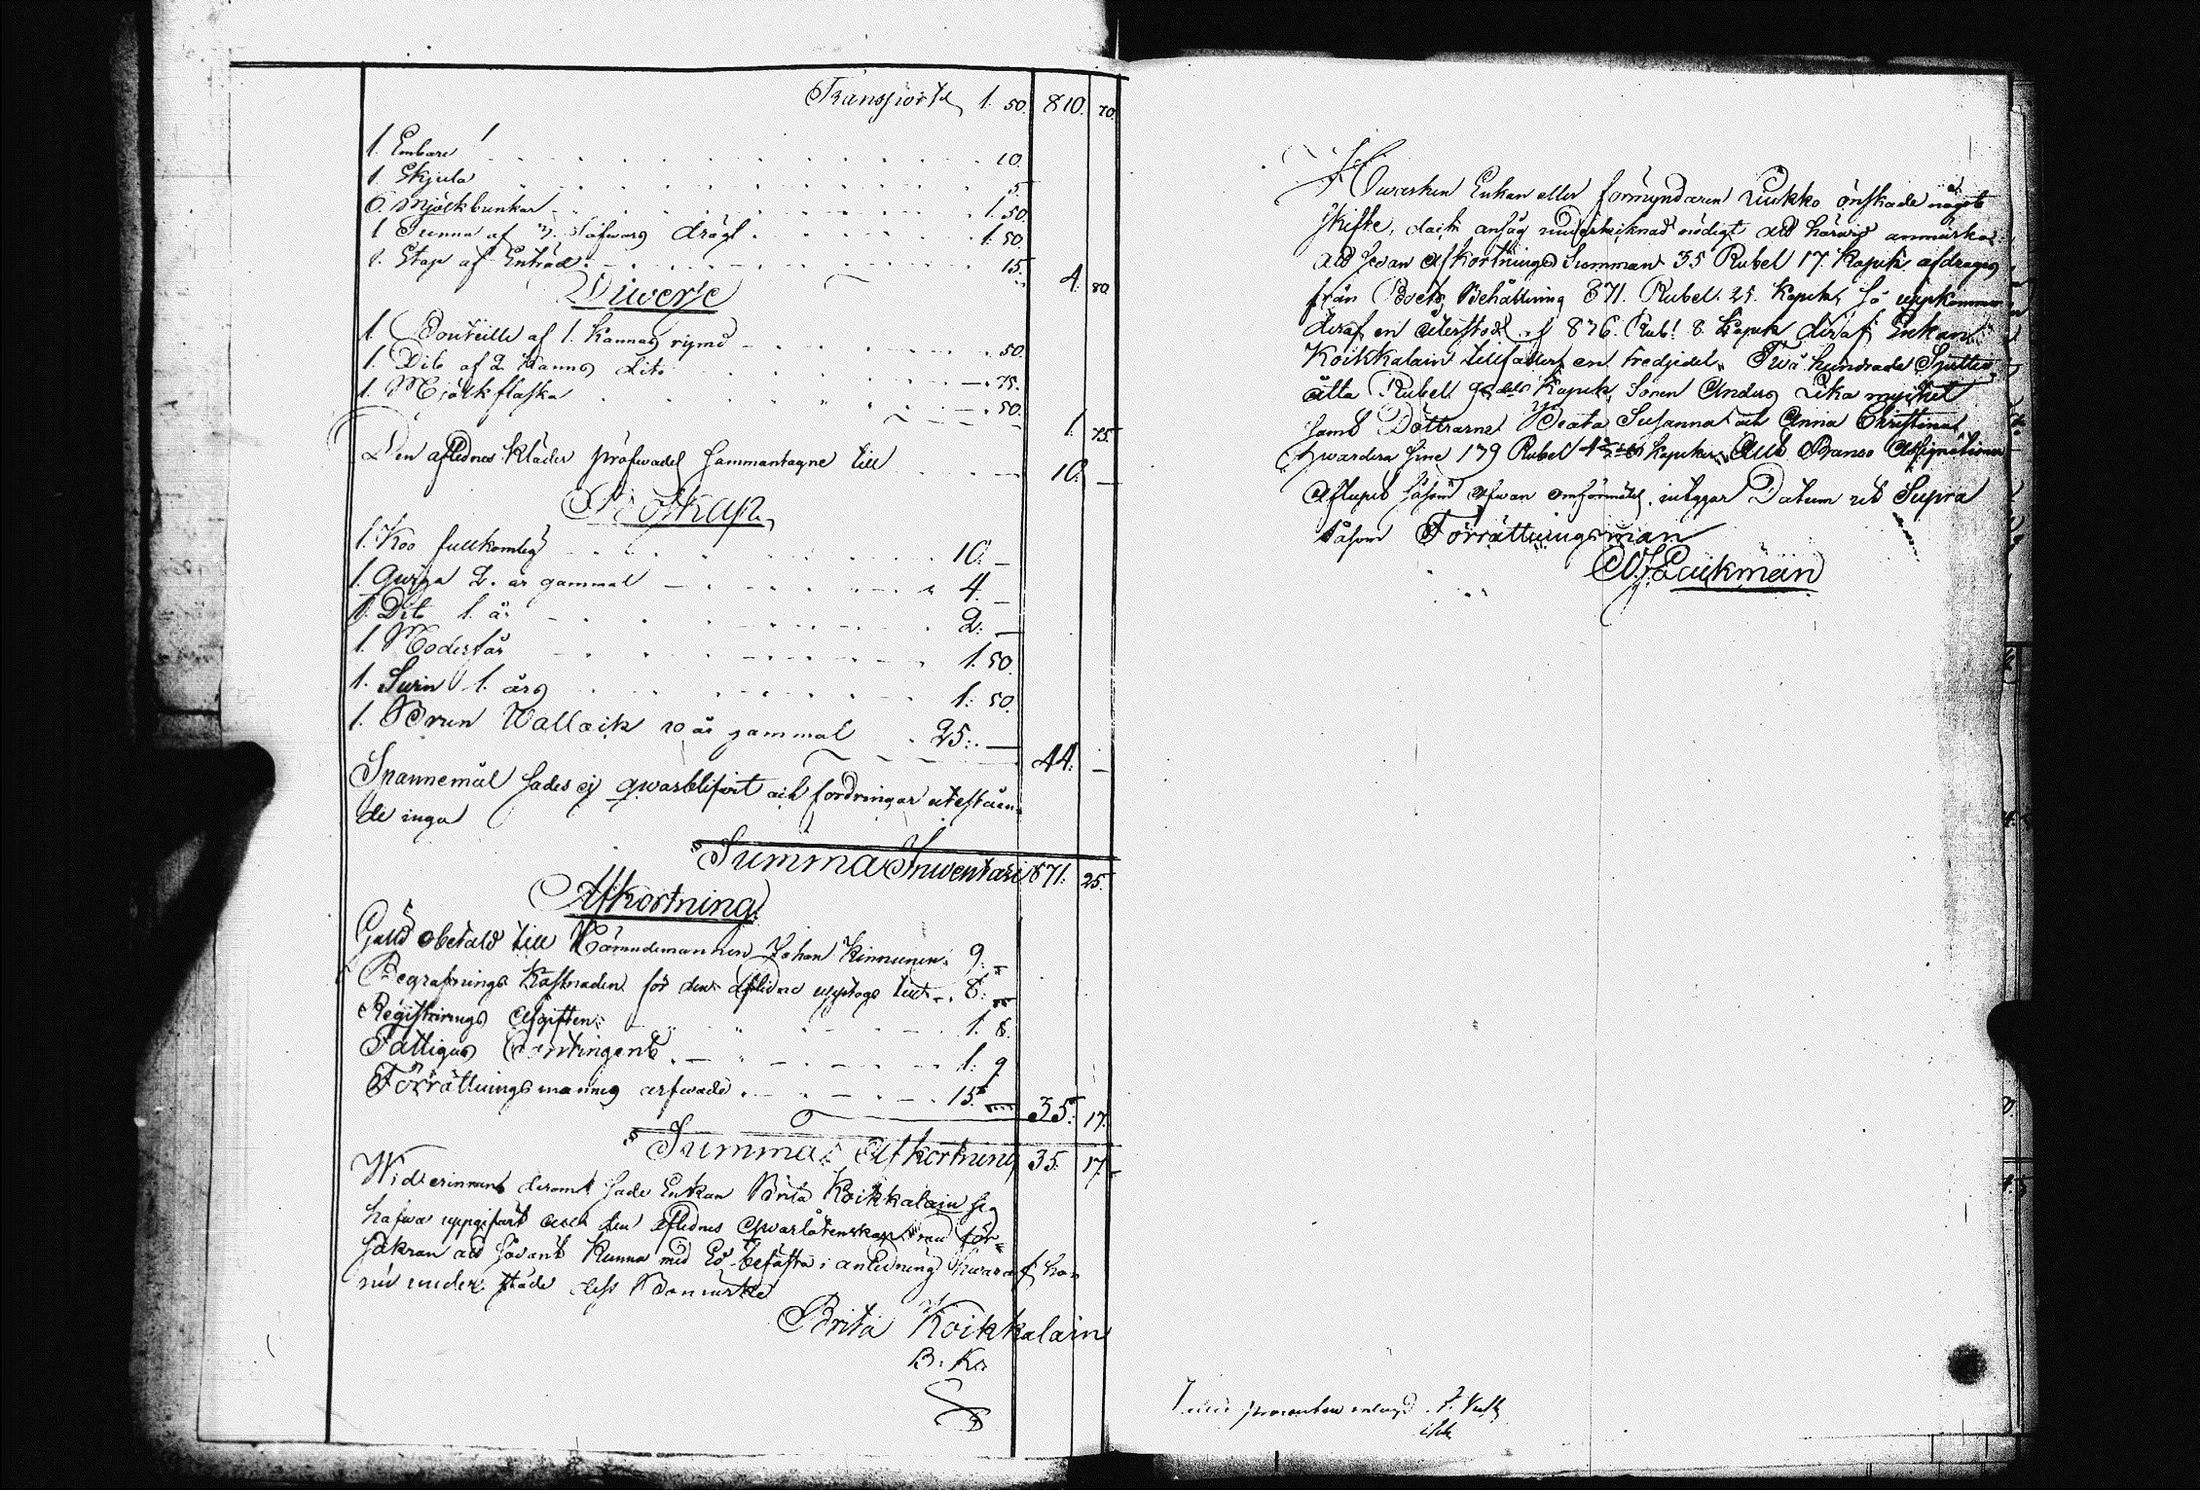 Transport 1. 50. 810. 70.
1. Embare 10.
1. Skjula 5
6. Mjölkbunkar 1. 50.
1 Tunna af 3. drägt 1. 50.
1. Stop af Enträd 15. 4. 80
Diverse
1. Bouteille af 1. Kannas rymd 50.
1. Dito af 2 Kannas dito 75.
1. Mjölkflaska 50. 1. 75
Den aflednes kläder pröfwades sammantagne till 10. —
Boskap
1. Koo fullkomlig 10. —
1. Qwiga 2. år gammal 4. —
1. Dito 1. år 2. —
1. Moderfår 1. 50
1. Swin 1. års 1. 50.
1. Brun Wallack 10 år gammal 25. — 44. —
Spannemål hades ej qwarblifwit och fordringar uteståen=
de inga
Summa Inventarii 871. 25.
Afkortning
Gäld obetald till Nämndemannen Johan Kinnunen 9. —
Begrafnings Kostnaden för den aflidne upptogs till 8. —
Registrings Afgiften 1. 8.
Fattigas Contingent 1. 9
Förrättningsmannens arfwode 15. — 35. 17.
Summa Afkortning 35. 17.
Wid erinran derom sade Enkan Brita Koikkalain sig
hafwa uppgifwit den aflednes Qwarlåtenskap med för=
säkran att sådant kunna med Ed befästa i anledning hwaraf hon
nu under städe dess Bomärke
Brita Koikkalain
B. K.
Hwarken Enkan eller förmyndaren Liukko önskade något
skifte, dock ansåg undertecknad nödigt att härwid anmärka:
att sedan Afkortnings Summan 35 Rubel 17 Kopek afdrages
från Boets Behållning 871. Rubel. 25. Kopek, så uppkommer
deraf en återstod af 836. Rub. 8 Kopek deraf Enkan
Koikkalain tillfaller en tredjedel, Twå hundrade Sjuttio
åtta Rubel Kopek, Sonen Anders lika mycket
samt Döttrarne Beata Susanna och Anna Christina
hwardera sine 139 Rubel Kopek Allt Banco Assignationer
Aflupit såsom ofwan omförmäld, intygar Datum ut Supra
såsom Förrättningsman
Luukmain